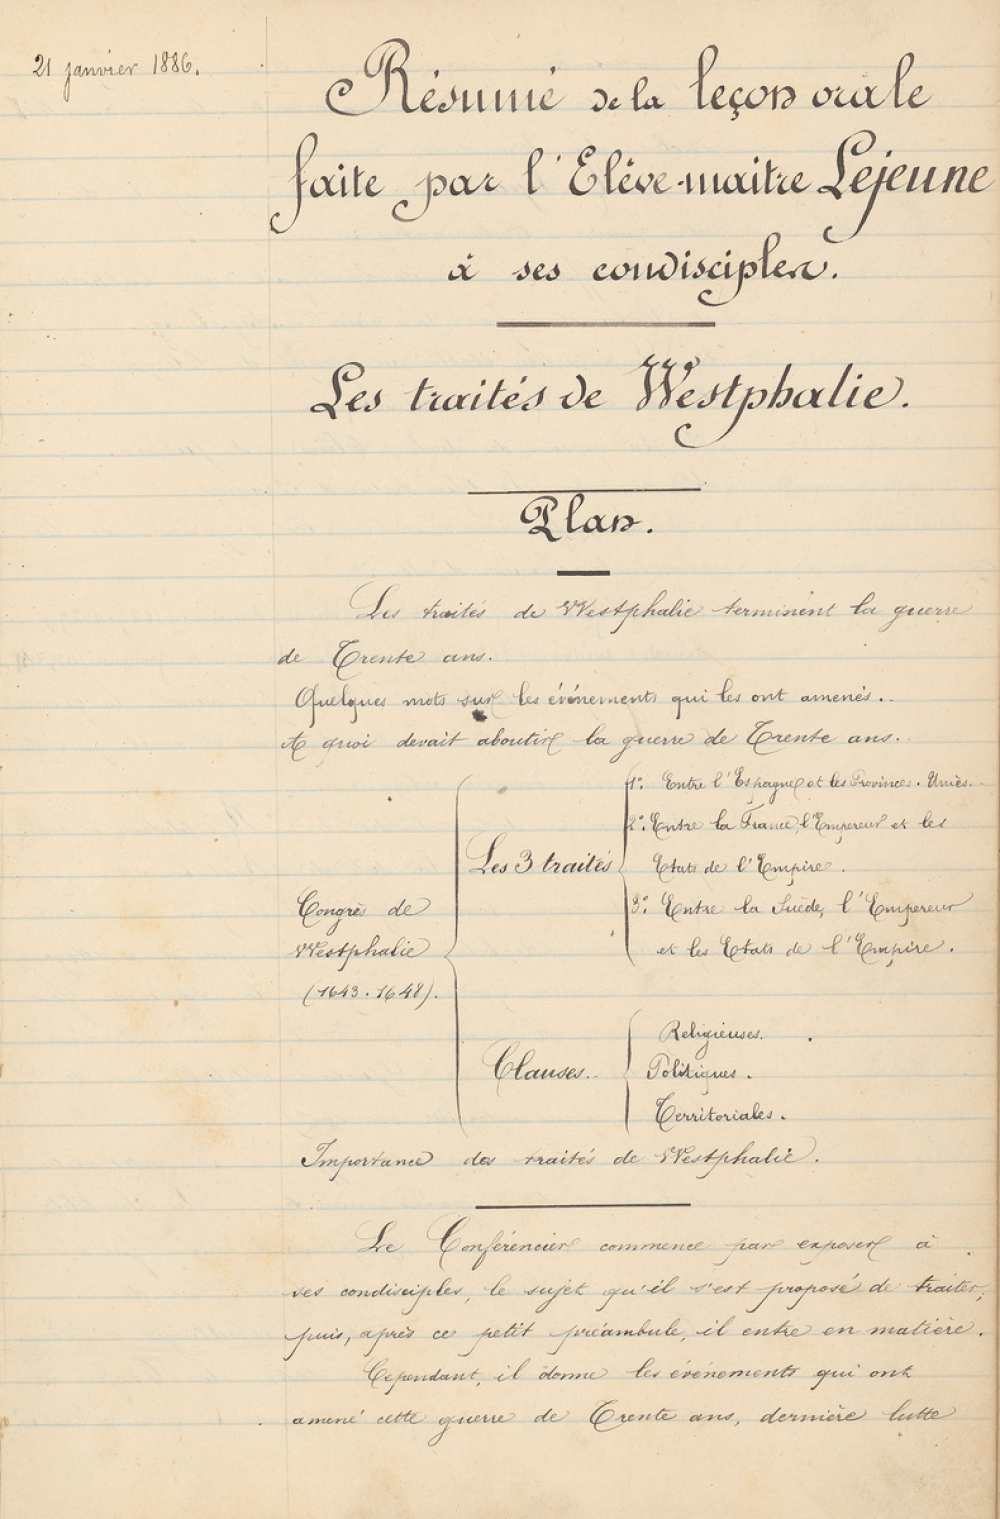 21 janvier 1886.
Résumé de la leçon orale
faite par l'Elève-maitre Lejeune
à ses condisciples.
Les traités de Westphalie.
Plan.
Les traités de Westphalie terminent la guerre
de Trente ans.
Quelques mots sur les événements qui les ont amenés..
A quoi devait aboutir la guerre de Trente ans..
Congrès de
Westphalie
(1643-1648).
Les 3 traités
1°: Entre l'Espagne et les Provinces-Unies.
2°: Entre la France, l'Empereur et les
Etats de l'Empire.
3°: Entre la Suède, l'Empereur
et les Etats de l'Empire.
Clauses..
Religieuses.
Politiques.
Territoriales.
Importance des traités de Westphalie.
Le Conférencier commence par exposer à
ses condisciples, le sujet qu'il s'est proposé de traiter,
puis, après ce petit préambule, il entre en matière.
Cependant, il donne les événements qui ont
amené cette guerre de Trente ans, dernière lutte